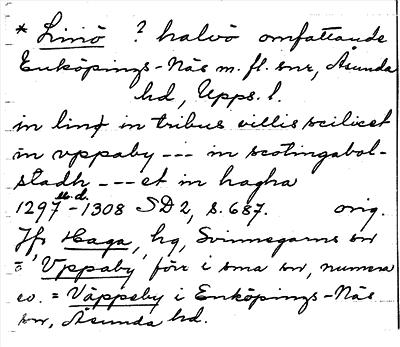 * Linö ? halvö omfattande
Enköpings-Näs m. fl. snr, Åsunda
hd, Upps. l.
in linø in tribus villis scilicet
in vppaby --- in scotingabol-
stadh --- et in hagha
1297 u.d. -1308 SD 2, s. 687. orig.
Jfr Haga, hg, Svinnegarns sn
o Vppaby förr i sma sn, numera
ev. = Väppeby i Enköpings-Näs
sn, Åsunda hd.